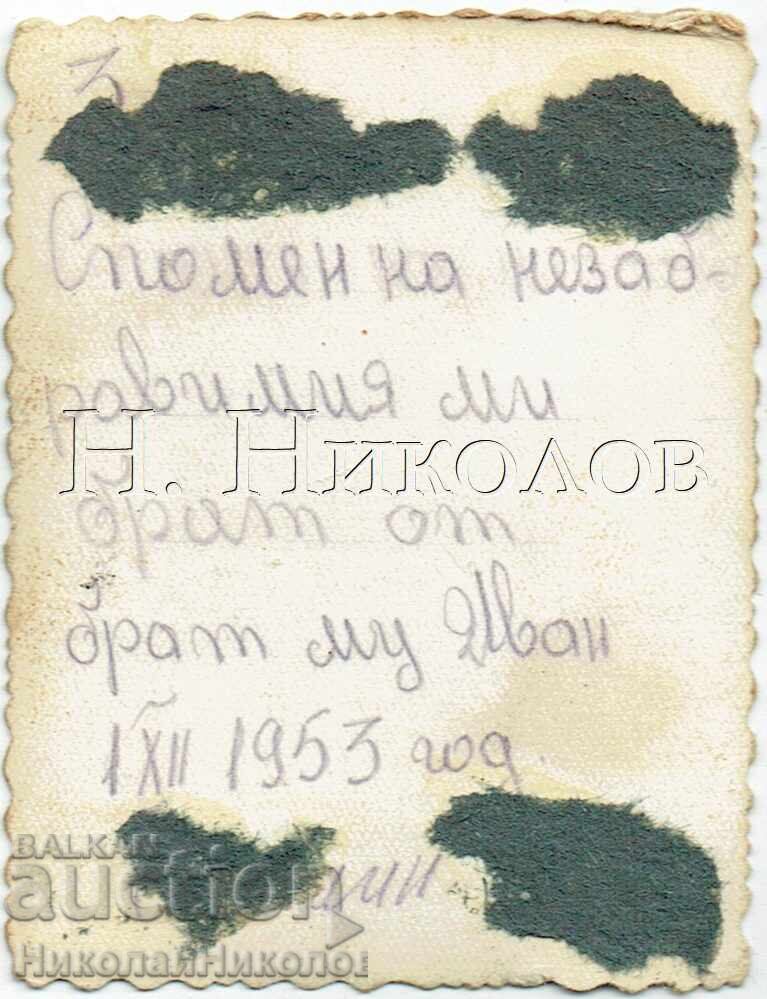 Спомен на незаб-
равимия ми
Н. Николов
брат от
брат му Иван
1 XII 1953 год.
BALKAN
auction
НиколайНиколов